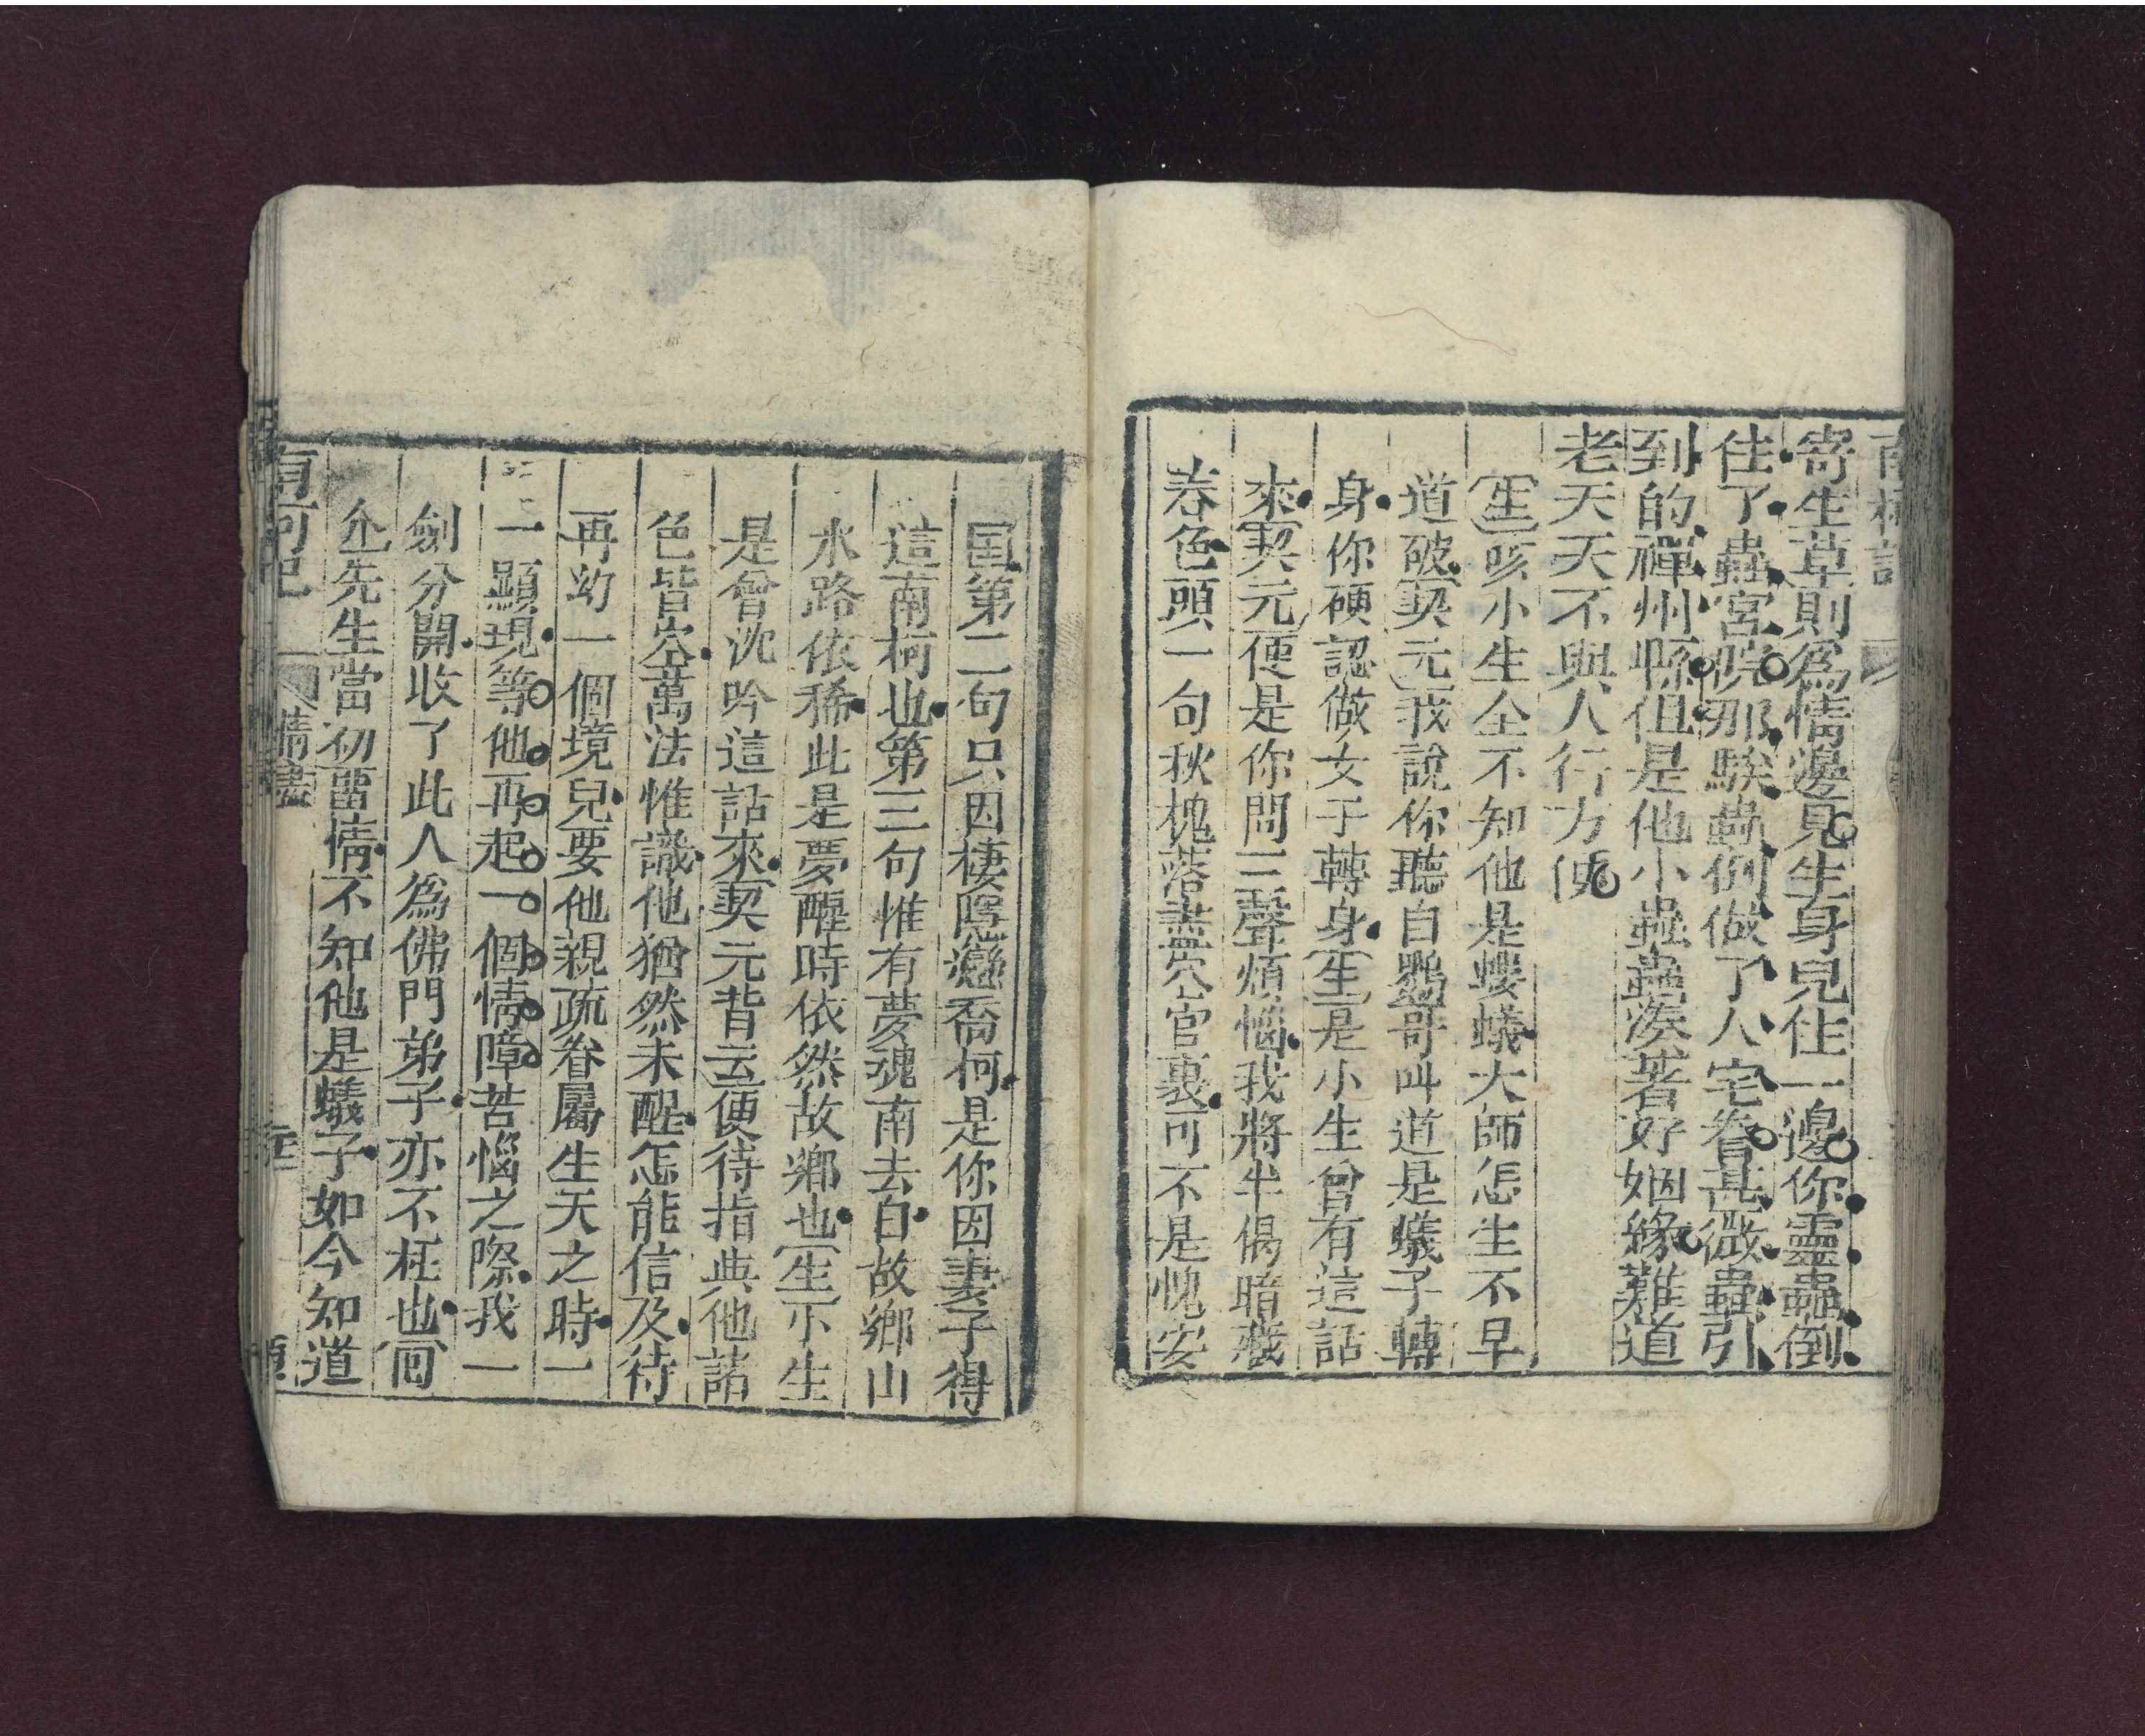 南柯記
寄生草則爲情邊見生身兒住一邊你靈蟲倒
住了蟲宮院那騃蟲倒做了人宅眷甚微蟲引
到的禪州縣但是他小蟲蟲湊著好姻緣難道
老天天不與人行方便
(生)咳小生全不知他是螻蟻大師怎生不早
道破(契元)我說你聽白鸚哥叫道是蟻子轉
身你硬認做女子轉身(生)是小生曾有這話
來(契元)便是你問三聲煩惱我將半偈暗藏
春色頭一句秋槐落盡空宮裏可不是槐安
国第二句只因棲隱戀喬柯是你因妻子得
這南柯也第三句惟有夢魂南去日故鄉山
水路依稀此是夢醒時依然故鄉也(生)小生
是曾沈吟這話來(契元背云)便待指與他諸
色皆空萬法惟識他猶然未醒怎能信及待
再幼一個境兒要他親疏眷屬生天之時一
一顯現等他再起一個情障苦惱之際我一
劍分開收了此人爲佛門弟子亦不枉也(回
仚先生當初畱情不知他是蟻子如今知道
南柯記 情盡